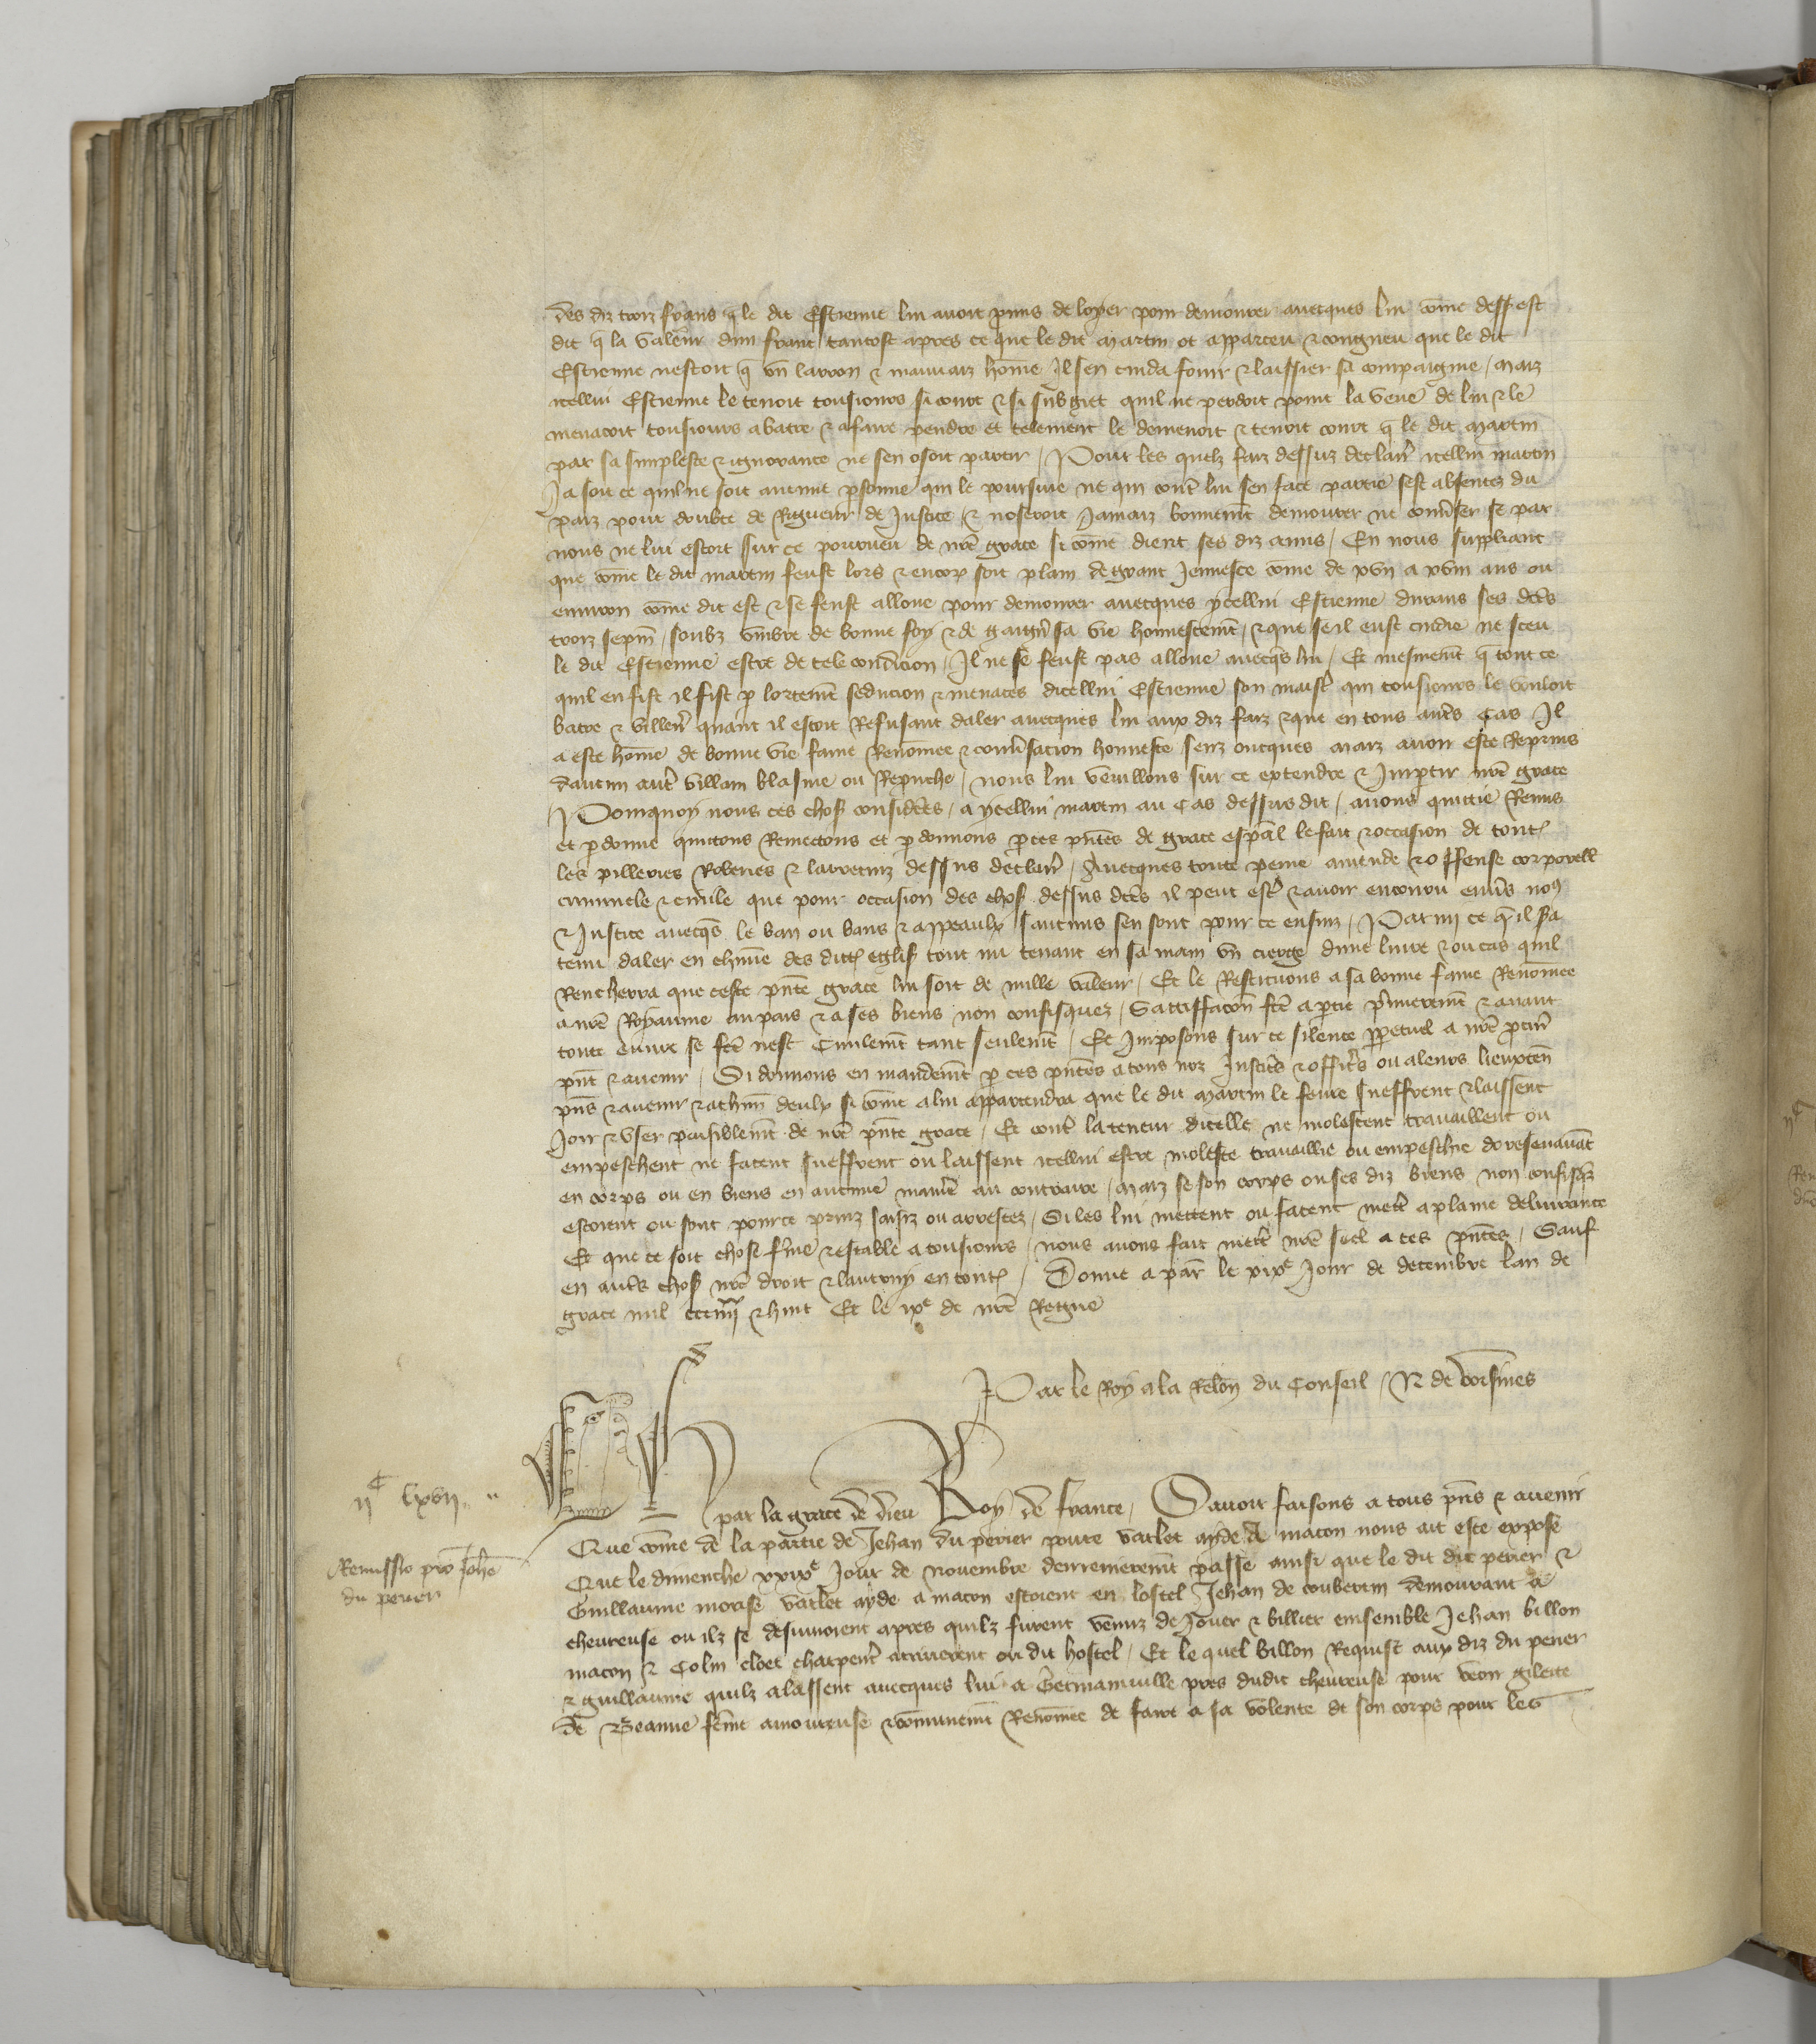 des diz trois frans q̃ le dit Estienne lui avoit promis de loyer pour demourer avecques lui cõme dess est
dit q̃ la valeur dun franc tantost apres ce que le dit Martin ot apparceu & congneu que le dit
Estienne nestoit q̃ un larron & mauvaiz hõme Il sen cuida fouir & laissier sa compaignie / maiz
icellui Estienne le tenoit tousiours si court & si subgiet quil ne perdoit point la veue de lui & le
menacoit tousiours a batre & a faire pendre et telement le demenoit & tenoit court q̃ le dit Martin
par sa simplesce & ignorance ne sen osoit partir / Pour les quelz faiz dessuz declair̃ icellui Martin
Ja soit ce quil ne soit aucune psonne qui le poursuie ne qui cont̃ lui sen face partie sest absentez du
paiz pour doubte de Rigueur de Justice & noseroit Jamaiz bonnemt demourer ne conv̾ser se par
nous ne lui estoit sur ce pourveu de nr̃e grace si cõme dient ses diz amis / En nous suppliant
que cõme le dit Martin feust lors & encor soit plain de grant Jennesce cõme de xvij a xviij ans ou
environ cõme dit est & se feust alloue pour demourer avecques ycellui Estienne durans ses dc̃es
trois sepm̃ / soubz umbre de bonne foy & de gaign̾ sa vie honnestemt / & que se il eust cuidie ne sceu
le dit Estienne estre de tele condicion / Il ne se feust pas alloue avecq̃s lui / Et mesmemt q̃ tout ce
quil en fist il fist p lortemt seducion & menaces dicellui Estienne son maist̾ qui tousiours le vouloit
batre & villen̾ quant il estoit Refusant daler avecques lui aux diz faiz & que en tous aut̾s cas Il
a este hõme de bonne vie fame Renomee & conv̾sacion honneste senz oncques maiz avoir este Reprins
daucun aut̾ villain blasme ou Reprouche / nous lui vueillons sur ce extendre & Impartir nr̃e grace
Pourquoy nous ces chos̾ considerees / a ycellui Martin au cas dessus dit / avons quictie Remis
et pdonne quictons Remectons et pdonnons p ces pñtes de grace esp̃al le fait & occasion de tout̾
les pilleries Roberies & larrecins dessus declair̾ / avecques toute peine amende & offense corporelle
criminele & civile que pour occasion des chos̾ dessus dc̃es il peut est̾ & avoir encouru env̾s no9
& Justice avecq̃s le ban ou bans & appeaulx saucuns sen sont pour ce ensuiz / Parmi ce q̃ il sa
tenu daler en chm̃e des dictes eglis̾ tout nu tenant en sa main un cierge dune livre & ou cas quil
Rencherra que ceste pñte grace lui soit de nulle valeur / Et le Restituons a sa bonne fame Renomee
a nr̃e Royaume au pais & a ses biens non confisquez / Satisffacion fc̃e a ptie p̾mierement & avant
toute euvre se fc̃e nest Civilemt tant seulemt / Et Imposons sur ce silence ppetuel a nr̃e pcur̃
pñt & avenir / Si donnons en mandemt p ces pñtes a tous noz Justic̾s & offic̾s ou a leurs lieuxten̾
pñs & avenir & a chm̃ deulx si cõme a lui appartendra que le dit Martin le feure sueffrent & laissent
Joir & user paisiblemt de nr̃e pñte grace / Et cont̾ la teneur dicelle ne molestent travaillent ou
empeschent ne facent sueffrent ou laissent icellui estre moleste travaillie ou empeschie doresenavãt
en corps ou en biens en aucune manie͂ au contraire / maiz se son corps ou ses diz biens non confisq̃z
estoient ou sont pour ce prins saisiz ou arrestez / Si les lui mettent ou facent mett̾ a plaine delivrance
Et que ce soit chose fme & estable a tousiours / nous avons fait mett̾ nr̃e seel a ces pñtes / Sauf
en aut̾s chos̾ nr̃e droit & lautruy en tout̾ / Donne a par̃ le xixe Jour de decembre lan de
grace mil ccc iiij xx & huit Et le ixe de nr̃e Regne
Par le Roy a la Relõn du Conseil / N de voisines
ijC lxvij
Remissio pro Johe
du perier
Ch par la grace de dieu Roy de france / Savoir faisons a tous pñs & avenir
Que cõme de la partie de Jehan du perier povre varlet ayde a macon nous ait este expose
Que le dimenche xxixe Jour de novembre derrenierement passe ainsi que le dit du perier &
Guillaume morise varlet ayde a macon estoient en lostel Jehan de coubertin demourant a
chevreuse ou ilz se desiunoient apres quilz furent venuz de Jouer & billier ensemble Jehan billon
macon & Colin cloet charpent̾ arriverent ou dit hostel / Et le quel billon Requist aux diz du perier
& guillaume quilz alassent avecques lui a Germainville pres dudit chevreuse pour veoir gilette
de Beanne fẽme amoureuse & cõmunemt Renõmee de faire a sa volente de son corps pour les